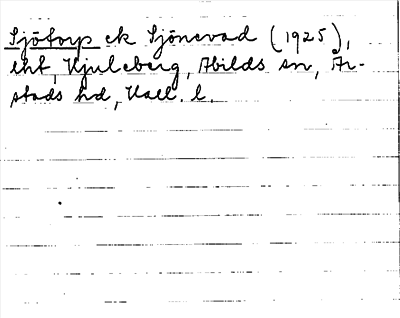 Sjötorp ek Sjönevad (1925),
lht, Kjuleberg, Abilds sn, År-
stads hd, Hall. l.